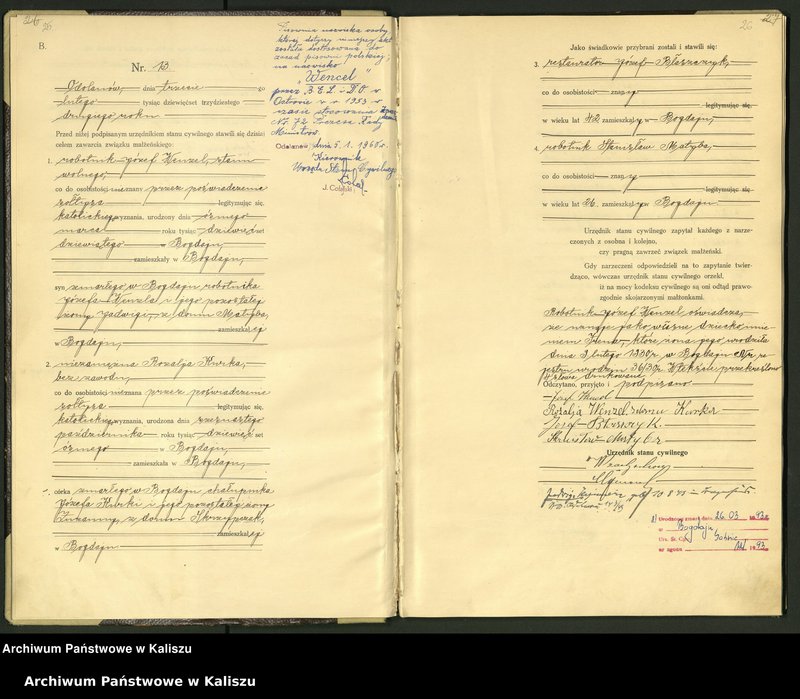 26
B.
Nr. 13
Odolanów, dnia trzeciego
lutego tysiąc dziewięćset trzydziestego
drugiego roku
Przed niżej podpisanym urzędnikiem stanu cywilnego stawili się dzisiaj
celem zawarcia związku małżeńskiego:
1. robotnik Józef Wenzel, stanu
wolnego,
co do osobistości nieznany przez poświadczenie
sołtysa legitymując się,
katolickiego wyznania, urodzony dnia ósmego
marca roku tysiąc dziewięćset
dziewiątego w Bogdaju,
zamieszkały w Bogdaju,
syn zmarłego w Bogdaju robotnika
Józefa Wenzla i jego pozostałej
żony Jadwigi, z domu Matyba,
zamieszkałej
w Bogdaju,
2. niezamężna Rozalja Kurka,
bez zawodu,
co do osobistości nieznana przez poświadczenie
sołtysa legitymując się,
katolickiego wyznania, urodzona dnia szesnastego
października roku tysiąc dziewięćset
ósmego w Bogdaju,
zamieszkała w Bogdaju,
córka zmarłego w Bogdaju chałupnika
Józefa Kurki i jego pozostałej żony
Zuzanny z domu Skrzypczak,
zamieszkałej
w Bogdaju
Pisownia nazwiska osoby
której dotyczy niniejszy akt
została dostosowana do
zasad pisowni polskiej,
na nazwisko
"Wencel"
przez
Ostrowie z r. 1953 w
czasie stosowania
Nr. 72
Ministrów.
Odolanów, dnia 5. 1. 1960 r.
Kierownik
Urzędu Stanu Cywilnego
26
27
Jako świadkowie przybrani zostali i stawili się:
3. restaurator Józef Błaszczyk,
co do osobistości znany
legitymując się,
w wieku lat 42 zamieszkały w Bogdaju,
4. robotnik Stanisław Matyba,
co do osobistości znany
legitymując się,
w wieku lat 26 zamieszkały w Bogdaju.
Urzędnik stanu cywilnego zapytał każdego z narze-
czonych z osobna i kolejno,
czy pragną zawrzeć związek małżeński.
Gdy narzeczeni odpowiedzieli na to zapytanie twier-
dząco, wówczas urzędnik stanu cywilnego orzekł,
iż na mocy kodeksu cywilnego są oni odtąd prawo-
zgodnie skojarzonymi małżonkami.
Robotnik Józef Wenzel oświadcza,
że uznaje jako własne dziecko imie-
niem Irena, które żona jego urodziła
dnia 3 lutego 1930r. w Bogdaju
jestru urodzin 36/30r. Wtekście przekreślono
słowa drukowane.
Odczytano, przyjęto i podpisano
Józef Wenzel
Rozalja Wenzel zdomu Kurka
Józef Błaszczyk.
Stanisław Matyba
Urzędnik stanu cywilnego
1) Urodzony zmarł dnia 26.03 1993r
w Bogdaju
Urz. St. Cyw.
nr zgonu 1993
Archiwum Państwowe w Kaliszu
Archiwum Państwowe w Kaliszu